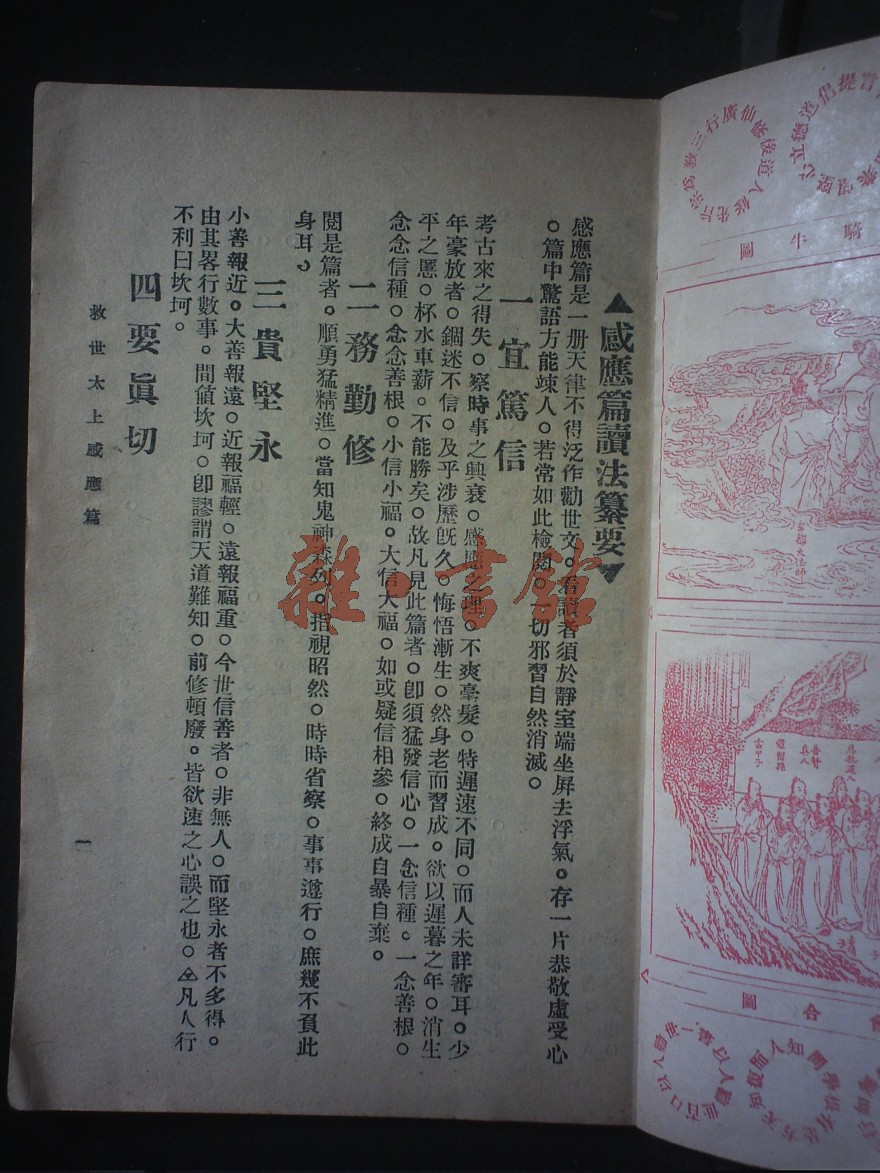 ▲感應篇讀法纂要▼
感應篇是一册天律不得泛作勸世文。看讀者須於靜室端坐屏去浮氣。存一片恭敬虛受心
。篇中驚語方能竦人。若常如此檢閱。一切邪習自然消滅。
一宜篤信
考古來之得失。察時事之興衰。感應之理。不爽毫髮。特遲速不同。而人未詳審耳。少
年豪放者。錮迷不信。及乎涉歷旣久。悔悟漸生。然身老而習成。欲以遲暮之年。消生
平之慝。杯水車薪。不能勝矣。故凡見此篇者。卽須猛發信心。一念信種。一念善根。
念念信種。念念善根。小信小福。大信大福。如或疑信相參。終成自暴自棄。
二務勤修
閱是篇者。順勇猛精進。當知鬼神森列。指視昭然。時時省察。事事遵行。庶幾不負此
身耳。
三貴堅永
小善報近。大善報遠。近報福輕。遠報福重。今世信善者。非無人。而堅永者不多得。
由其畧行數事。間値坎坷。卽謬謂天道難知。前修頓廢。皆欲速之心誤之也。△凡人行
不利曰坎坷。
四要眞切
救世太上感應篇
一
雜·書館
騎牛圖
合圖